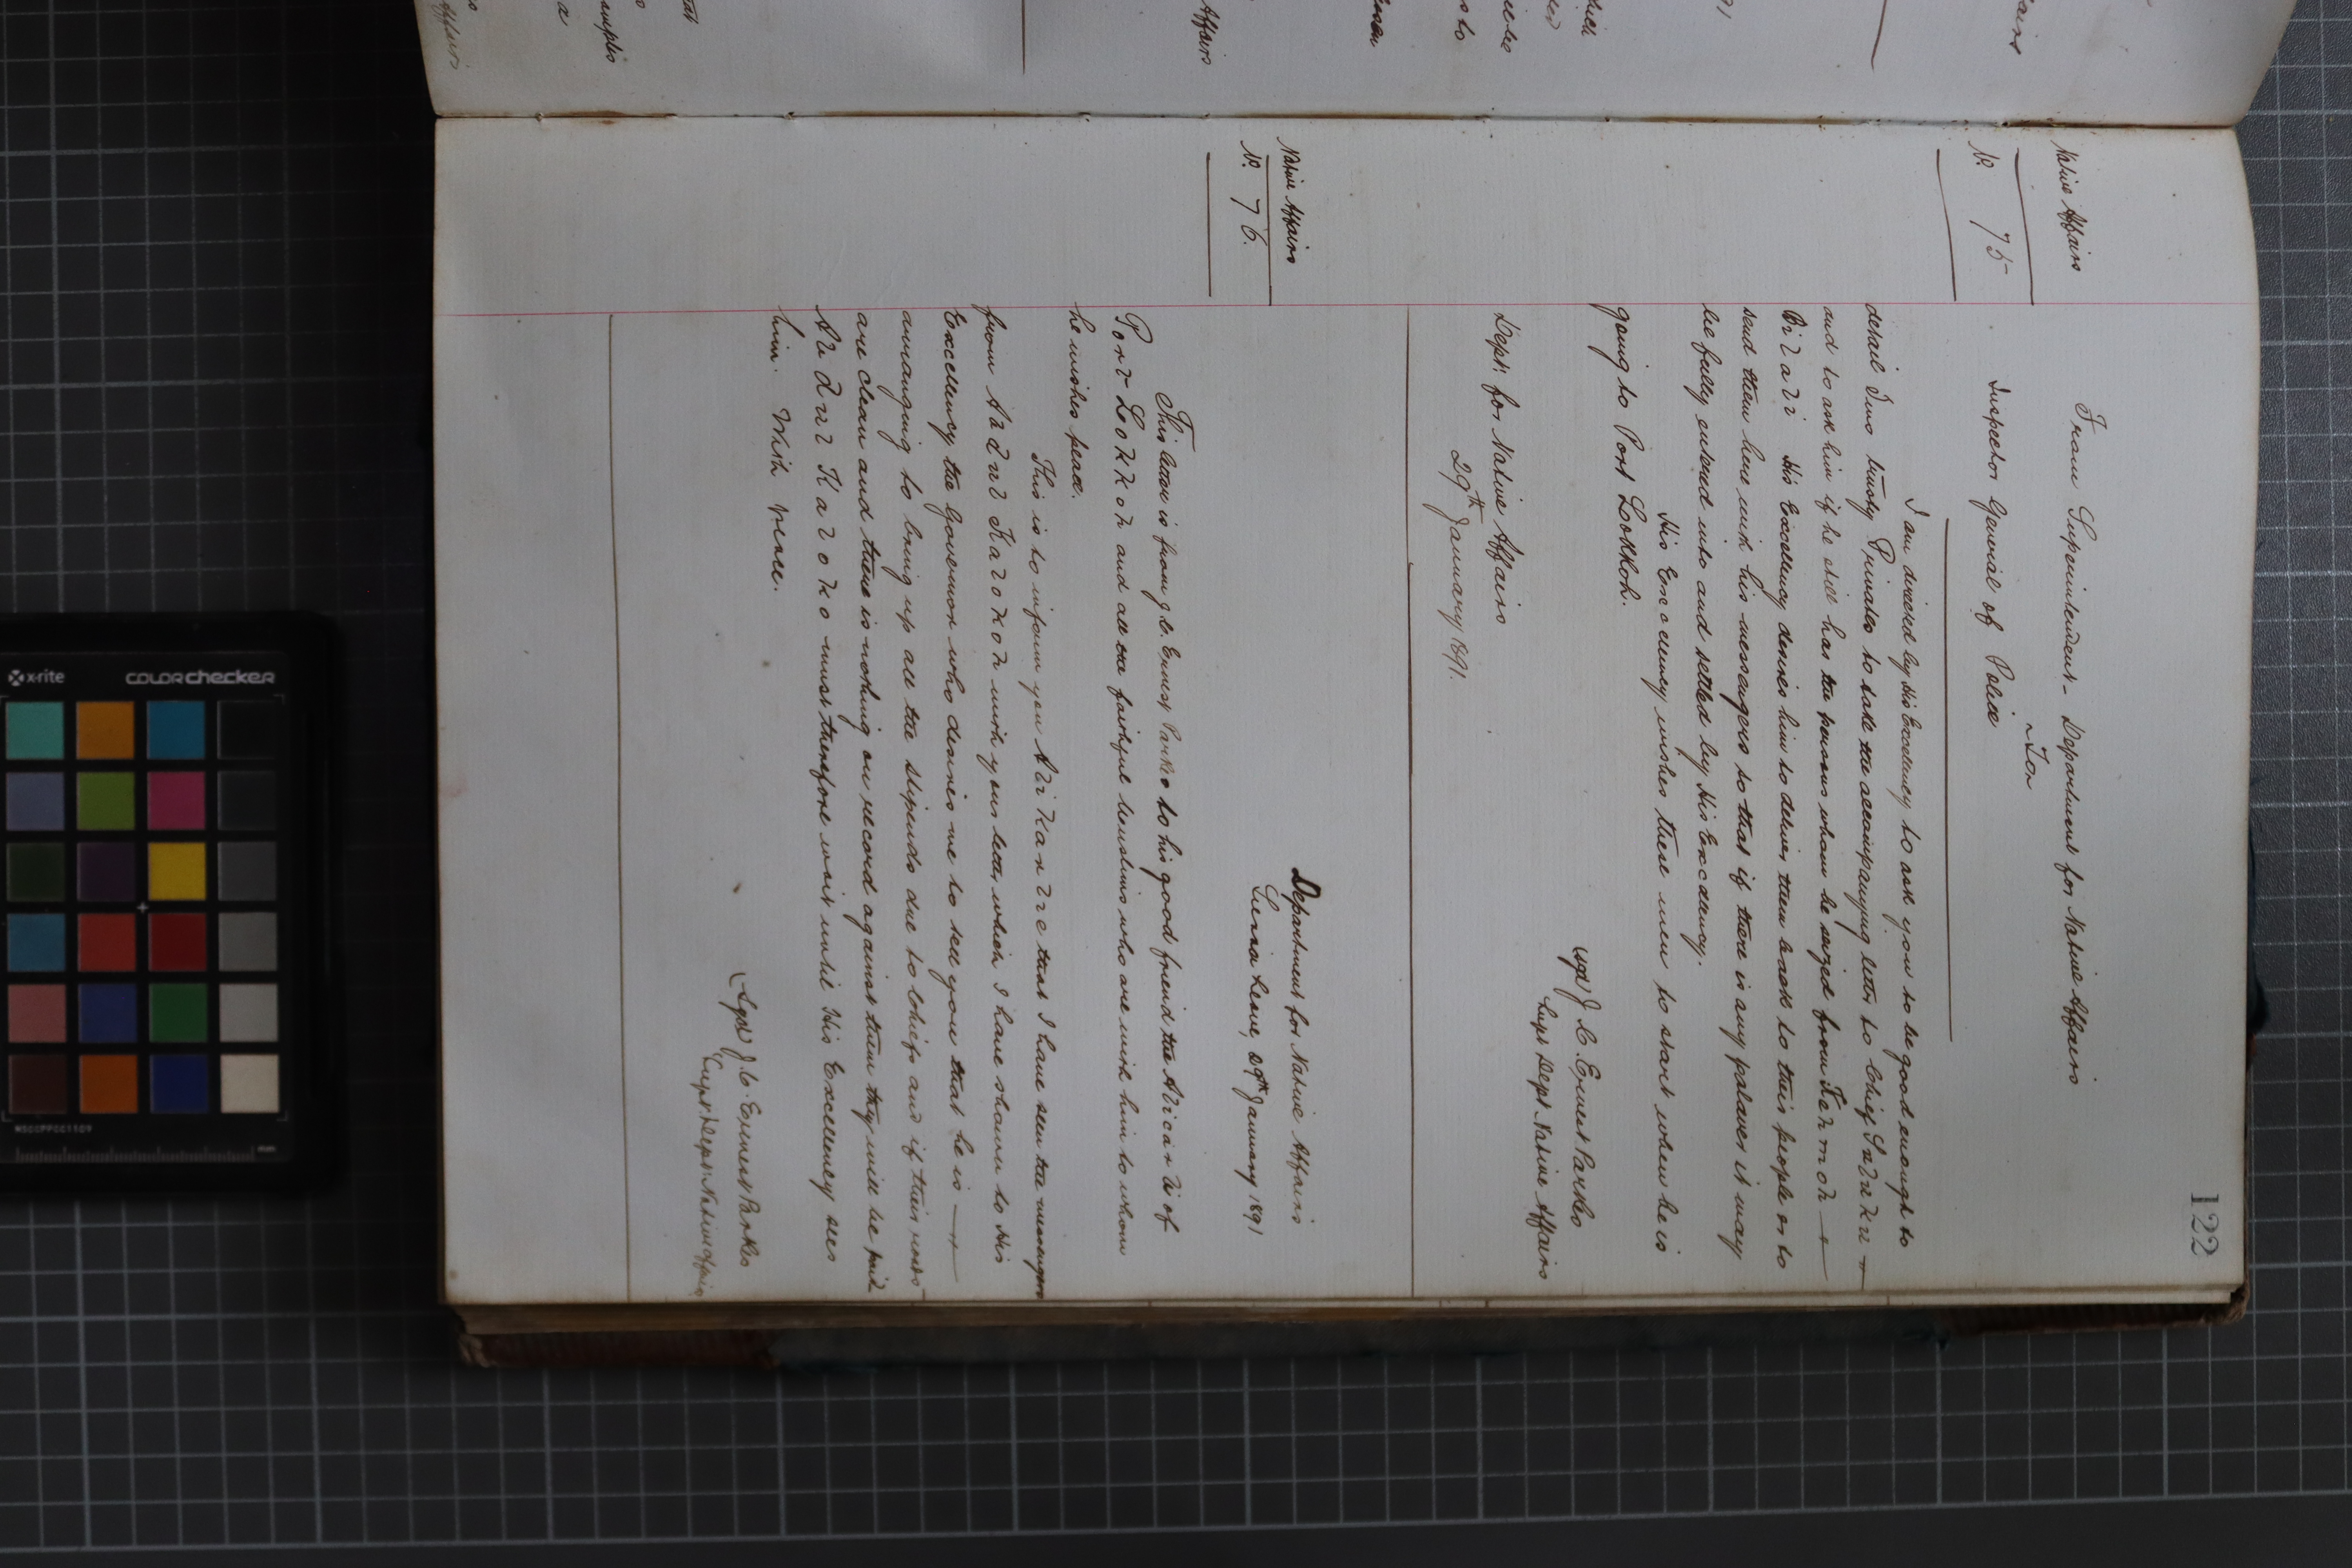 122
Native Affairs
No. 75
From Superintendent - Department for Native Affairs
To
Inspector General of Police
I am directed by His Excellency to ask you to be good enough to
detail two trusty Privates to take the accompanying letter to Chief
and to ask him if he still has the persons whom he seized from
His Excellency desires him to deliver them back to their people or to
send them here with his messengers so that if there is any palaver it may
be fully entered into and settled by His Excellency.
His Excellency wishes these men to start when he is
going to Port Lokkoh.
(sgd) J. C. Ernest Parkes
Supt Dept Native Affairs
Dept: for Native Affairs
29th January 1891.
Native Affairs
No. 76.
Department for Native Affairs
Sierra Leone, 29th January 1891
This letter is from J. C. Ernest Parkes to his good friend the Alikarli of
Port Lokkoh and all the faithful Muslims who are with him to whom
he wishes peace.
This is to inform you Alikarlie that I have seen the messengers
from with your letter which I have shown to His
Excellency the Governor who desires me to tell you that he is
arranging to bring up all the stipends due to Chiefs and if their roads
are clean and there is nothing on record against them they will be paid
must therefore wait until His Excellency sees
him. With peace.
(Sgd) J. C. Ernest Parkes
Supt: Dept: Native Affairs
x-rite
colorchecker